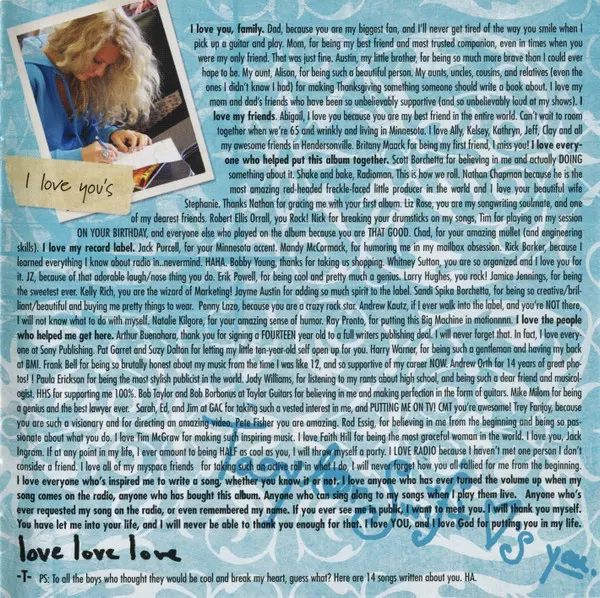 I love you, family. Dad, because you are my biggest fan, and I'll never get tired of the way you smile when I
pick up a guitar and play. Mom, for being my best friend and most trusted companion, even in times when you
were my only friend. That was just fine. Austin, my little brother, for being so much more brave than I could ever
hope to be. My aunt, Alison, for being such a beautiful person. My aunts, uncles, cousins, and relatives (even the
ones I didn't know I had) for making Thanksgiving something someone should write a book about. I love my
mom and dad's friends who have been so unbelievably supportive (and so unbelievably loud at my shows). I
love my friends. Abigail, I love you because you are my best friend in the entire world. Can't wait to room
together when we're 65 and wrinkly and living in Minnesota. I love Ally, Kelsey, Kathryn, Jeff, Clay and all
my awesome friends in Hendersonville. Britany Maack for being my first friend, I miss you! I love every-
one who helped put this album together. Scott Borchetta for believing in me and actually DOING
something about it. Shake and bake, Radioman. This is how we roll. Nathan Chapman because he is the
most amazing red-headed freckle-faced little producer in the world and I love your beautiful wife
Stephanie. Thanks Nathan for gracing me with your first album. Liz Rose, you are my songwriting soulmate, and one
of my dearest friends. Robert Ellis Orrall, you Rock! Nick for breaking your drumsticks on my songs, Tim for playing on my session
ON YOUR BIRTHDAY, and everyone else who played on the album because you are THAT GOOD. Chad, for your amazing mullet (and engineering
skills). I love my record label. Jack Purcell, for your Minnesota accent. Mandy McCormack, for humoring me in my mailbox obsession. Rick Barker, because I
learned everything I know about radio in..nevermind. HAHA. Bobby Young, thanks for taking us shopping. Whitney Sutton, you are so organized and I love you for
it. JZ, because of that adorable laugh/nose thing you do. Erik Powell, for being cool and pretty much a genius. Larry Hughes, you rock! Jamice Jennings, for being
the sweetest ever. Kelly Rich, you are the wizard of Marketing! Jayme Austin for adding so much spirit to the label. Sandi Spika Borchetta, for being so creative/bril-
liant/beautiful and buying me pretty things to wear. Penny Lazo, because you are a crazy rock star. Andrew Kautz, if I ever walk into the label, and you're NOT there,
I will not know what to do with myself. Natalie Kilgore, for your amazing sense of humor. Ray Pronto, for putting this Big Machine in motionnnn. I love the people
who helped me get here. Arthur Buenahora, thank you for signing a FOURTEEN year old to a full writers publishing deal. I will never forget that. In fact, I love every-
one at Sony Publishing. Pat Garret and Suzy Dalton for letting my little ten-year-old self open up for you. Harry Warner, for being such a gentleman and having my back
at BMI. Frank Bell for being so brutally honest about my music from the time I was like 12, and so supportive of my career NOW. Andrew Orth for 14 years of great pho-
tos! ! Paula Erickson for being the most stylish publicist in the world. Jody Williams, for listening to my rants about high school, and being such a dear friend and musicol-
ogist. HHS for supporting me 100%. Bob Taylor and Bob Borbonus at Taylor Guitars for believing in me and making perfection in the form of guitars. Mike Milom for being
a genius and the best lawyer ever. Sarah, Ed, and Jim at GAC for taking such a vested interest in me, and PUTTING ME ON TV! CMT you're awesome! Trey Fanjoy, because
you are such a visionary and for directing an amazing video. Pete Fisher you are amazing. Rod Essig, for believing in me from the beginning and being so pas-
sionate about what you do. I love Tim McGraw for making such inspiring music. I love Faith Hill for being the most graceful woman in the world. I love you, Jack
Ingram. If at any point in my life, I ever amount to being HALF as cool as you, I will throw myself a party. I LOVE RADIO because I haven't met one person I don't
consider a friend. I love all of my myspace friends for taking such an active interest in what I do, I will never forget how you all rallied for me from the beginning.
I love everyone who's inspired me to write a song, whether you know it or not. I love anyone who has ever turned the volume up when my
song comes on the radio, anyone who has bought this album. Anyone who can sing along to my songs when I play them live. Anyone who's
ever requested my song on the radio, or even remembered my name. If you ever see me in public, I want to meet you. I will thank you myself.
You have let me into your life, and I will never be able to thank you enough for that. I love YOU, and I love God for putting you in my life.
I love you's
love love love
-T- PS: To all the boys who thought they would be cool and break my heart, guess what? Here are 14 songs written about you. HA.
you.